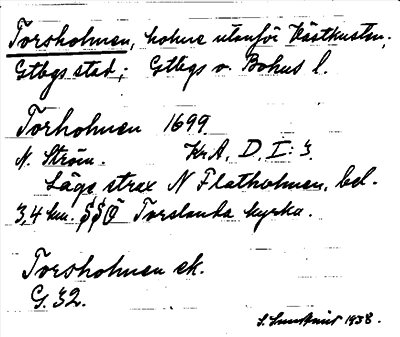 Torsholmen, holme utanför Västkusten,
Gtbgs stad; Gtbgs o. Bohus l.
Torholmen 1699
N. Ström. KrA, D. I: 3.
Läge strax N Flatholmen, bel.
3,4 km. SSÖ Torslanda kyrka.
Torsholmen ek.
G. 32.
1938.